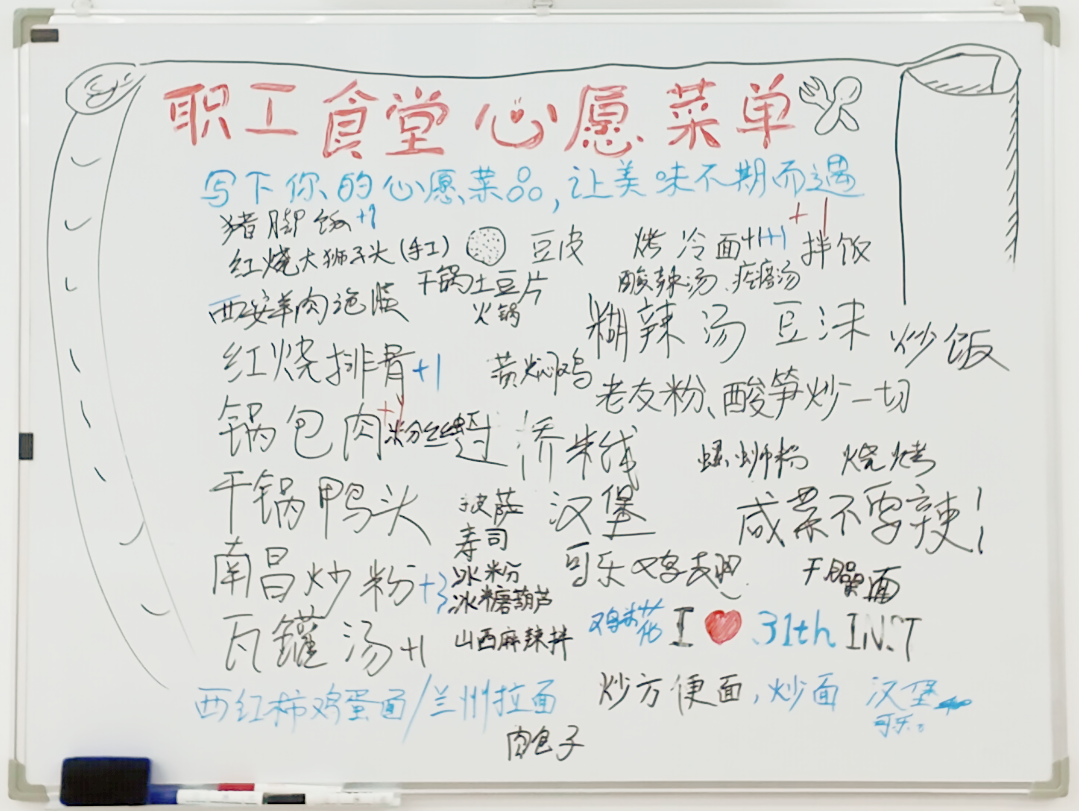 职工食堂心愿菜单
写下你的心愿菜品,让美味不期而遇
猪脚饭+1
红烧大狮子头(手工)
豆皮
烤冷面+1+1
+1
拌饭
干锅土豆片
酸辣汤 疙瘩汤
西安羊肉泡馍
火锅
糊辣汤 豆沫
炒饭
红烧排骨+1
黄焖鸡
老友粉、酸笋炒一切
锅包肉+1
粉丝
过桥米线
螺蛳粉 烧烤
干锅鸭头
披萨
汉堡
咸菜不要辣!
寿司
南昌炒粉+3
冰粉
可乐鸡翅
干
面
冰糖葫芦
瓦罐汤+1
山西麻辣拌
鸡米花
I ❤ 31th INST
西红柿鸡蛋面/兰州拉面
炒方便面,炒面
汉堡
可乐。
肉包子